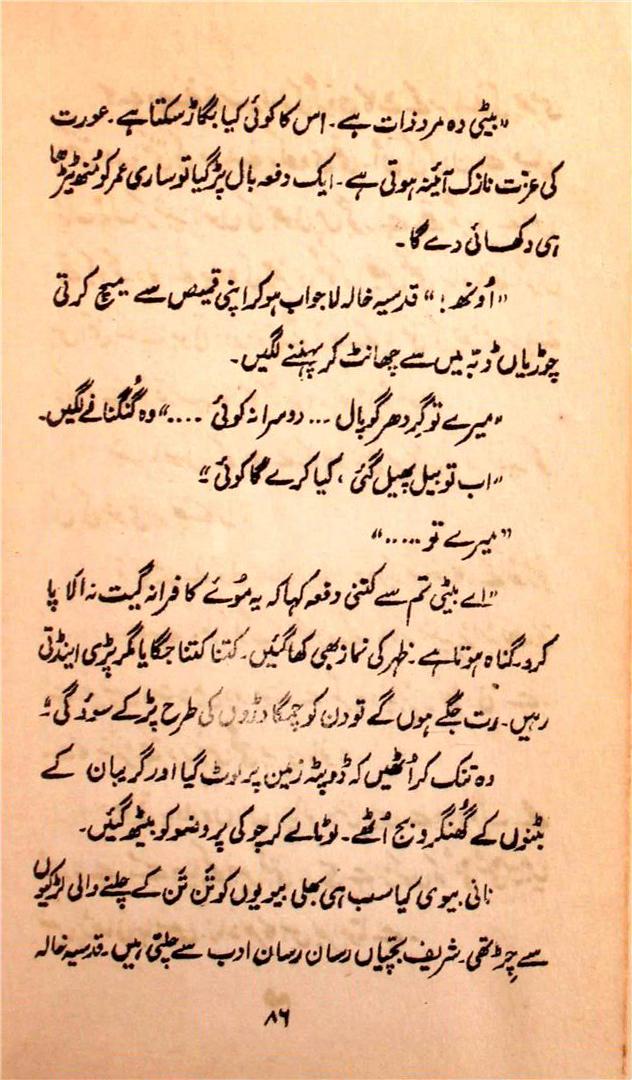 "بیٹی وہ مرد ذات ہے۔ اس کا کوئی کیا بگاڑ سکتا ہے۔ عورت
کی عزت نازک آئنہ ہوتی ہے۔ ایک دفعہ بال پڑ گیا تو ساری عمر کو مُنھ ٹیڑھا
ہی دکھائی دے گا۔
"اُونھ!" قدسیہ خالہ لاجواب ہو کر اپنی قمیص سے میچ کرتی
چوڑیاں ڈبّہ میں سے چھانٹ کر پہننے لگیں۔
"میرے تو گِردھر گوپال ... دوسرا نہ کوئی ...." وہ گُنگنانے لگیں۔
"اب تو بیل پھیل گئی، کیا کرے گا کوئی"
"میرے تو ....."
"اے بیٹی تم سے کتنی دفعہ کہا کہ یہ موُئے کافرانہ گیت نہ الاپا
کرو۔ گناہ ہوتا ہے۔ ظہر کی نماز بھی کھا گئیں۔ کتنا کتنا جگایا مگر پڑی اینڈتی
رہیں۔ رت جگے ہوں گے تو دن کو چمگادڑوں کی طرح پڑ کے سوؤ گی"
وہ تنک کر اُٹھیں کہ ڈوپٹہ زمین پر لوٹ گیا اور گریبان کے
بٹنوں کے گھُنگرو بج اُٹھے۔ لوٹا لے کر چوکی پر وضو کو بیٹھ گئیں۔
نانی بیوی کیا سب ہی بھلی بیویوں کو تَن تَن کے چلنے والی لڑکیوں
سے چِڑ تھی۔ شریف بچیّاں رسان رسان ادب سے چلتی ہیں۔ قدسیہ خالہ
۸۶